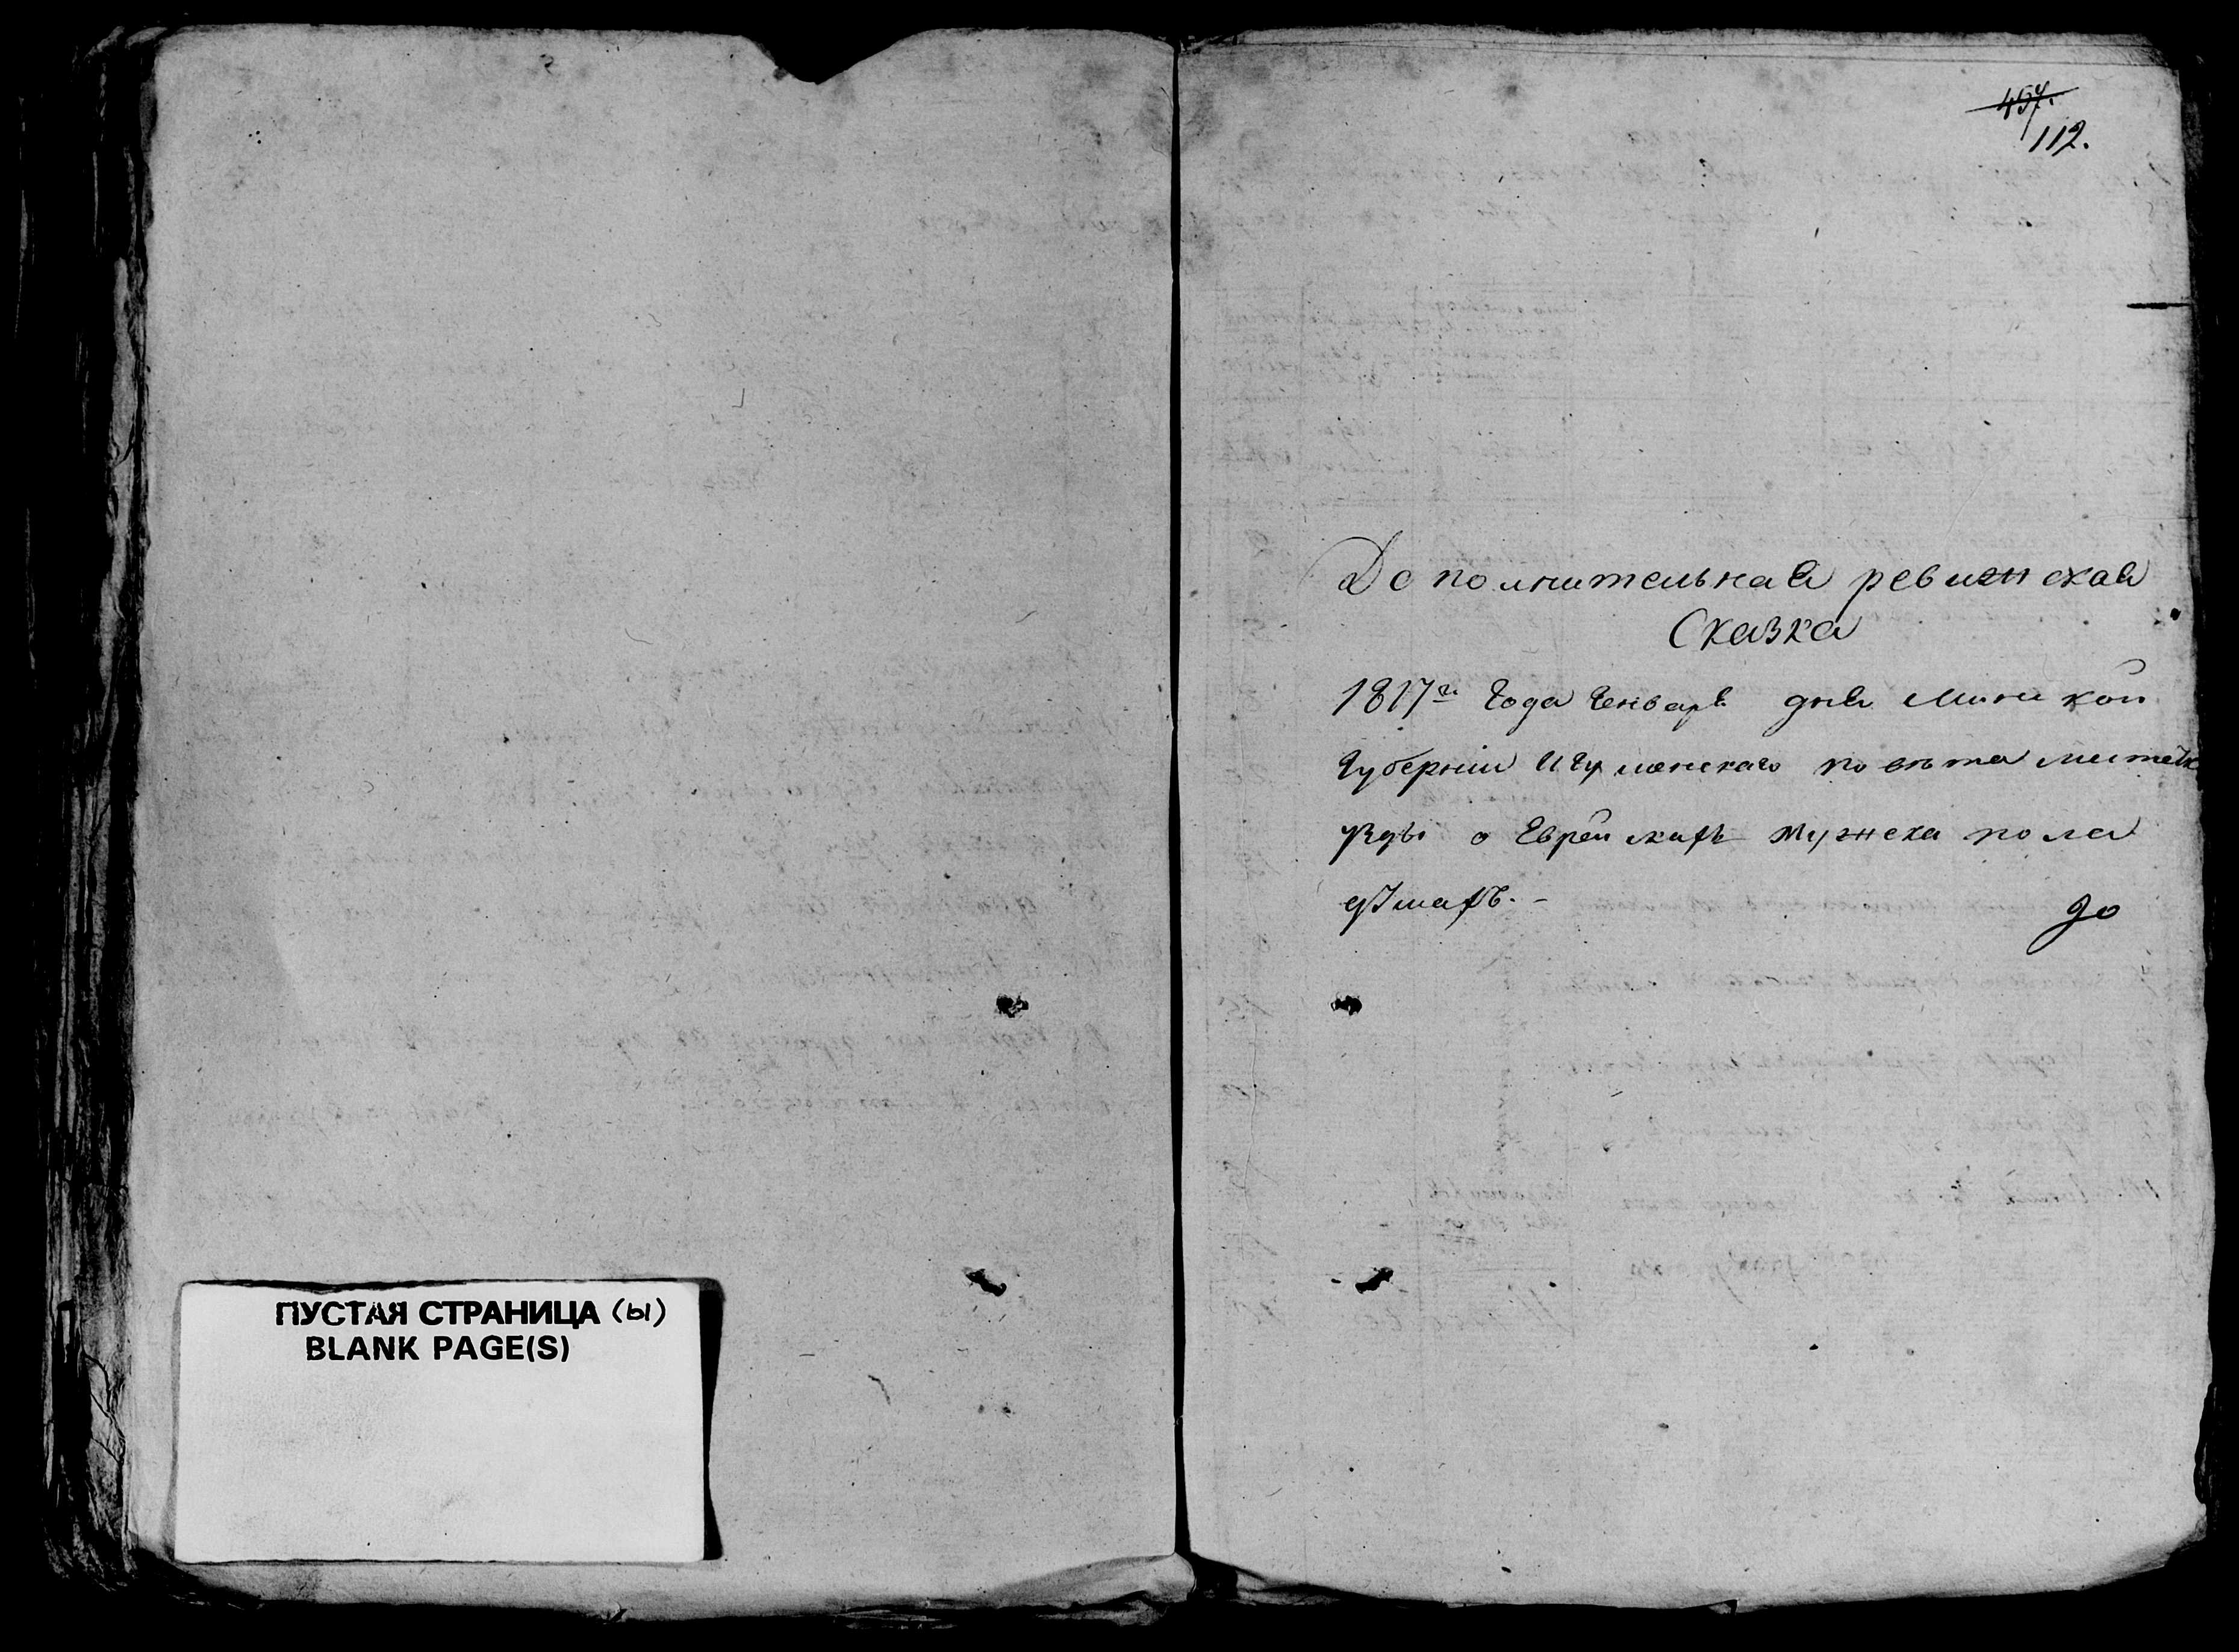 ПУСТАЯ СТРАНИЦА (ы)
BLANK PAGE(S)
457.
112.
Дополнительная ревижская
Сказка
1817го Года Генваря дня Минской
Губернии Игуменскаго повета местечк
Узды о Еврейскихъ мужска пола
душахъ. –
90